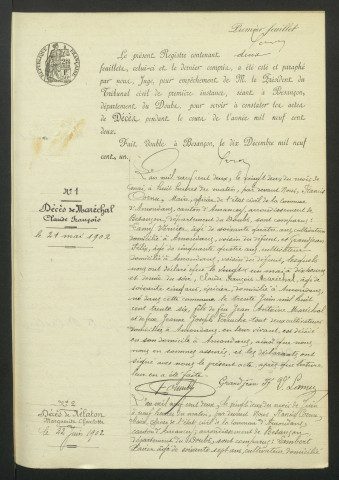 Premier feuillet
Le présent Registre contenant deux
feuillets, celui-ci et le dernier compris, a été coté et paraphé
par nous, Juge, pour empêchement de M. le Président du
Tribunal civil de première instance, séant à Besançon,
département du Doubs, pour servir à constater les actes
de Décès pendant le cours de l'année mil neuf cent
deux.
Fait, double à Besançon, le dix Décembre neuf cent
un,
N° 1
Décès de Maréchal
Claude François
le 21 mai 1902
L'an mil neuf cent deux, le vingt deux du mois de
mai, à huit heures du matin, par devant Nous, Francis
Maire, officier de l'état civil de la commune
d'Amondans, canton d'Amancey, arrondissement de
Besançon, département du Doubs, sont comparus:
âgé de soixante cinq ans, cultivateur
domicilié à Amondans, voisin du défunt, et Grandjean
Félix, âgé de cinquante quatre ans, cultivateur
domicilié à Amondans, voisin du défunt, lesquels
nous ont déclaré que le vingt un mai, à dix heures
et demie du soir, Claude François Maréchal, âgé de
soixante cinq ans, domicilié à Amondans,
né dans cette commune le trente Juin mil huit
cent trente six, fils de feu Jean Antoine Maréchal
et de feue Jeanne Joseph tous deux cultivateurs
domiciliés à Amondans, en leur vivant, est décédé
en son domicile à Amondans, ainsi que nous
nous en sommes assurés, et les déclarants ont
signé avec nous le présent acte après que lecture
leur en a été faite.
Grandjean F
N° 2
Décès de
Marguerite Charlotte
le 22 Juin 1902
L'an mil neuf cent deux, le vingt du mois de Juin
à neuf heures du matin, par devant Nous Francis
Maire, officier de l'état civil de la commune d'Amondans,
canton d'Amancey, arrondissement de Besançon
département du Doubs, sont comparus:
âgé de soixante sept ans, cultivateur domicilié